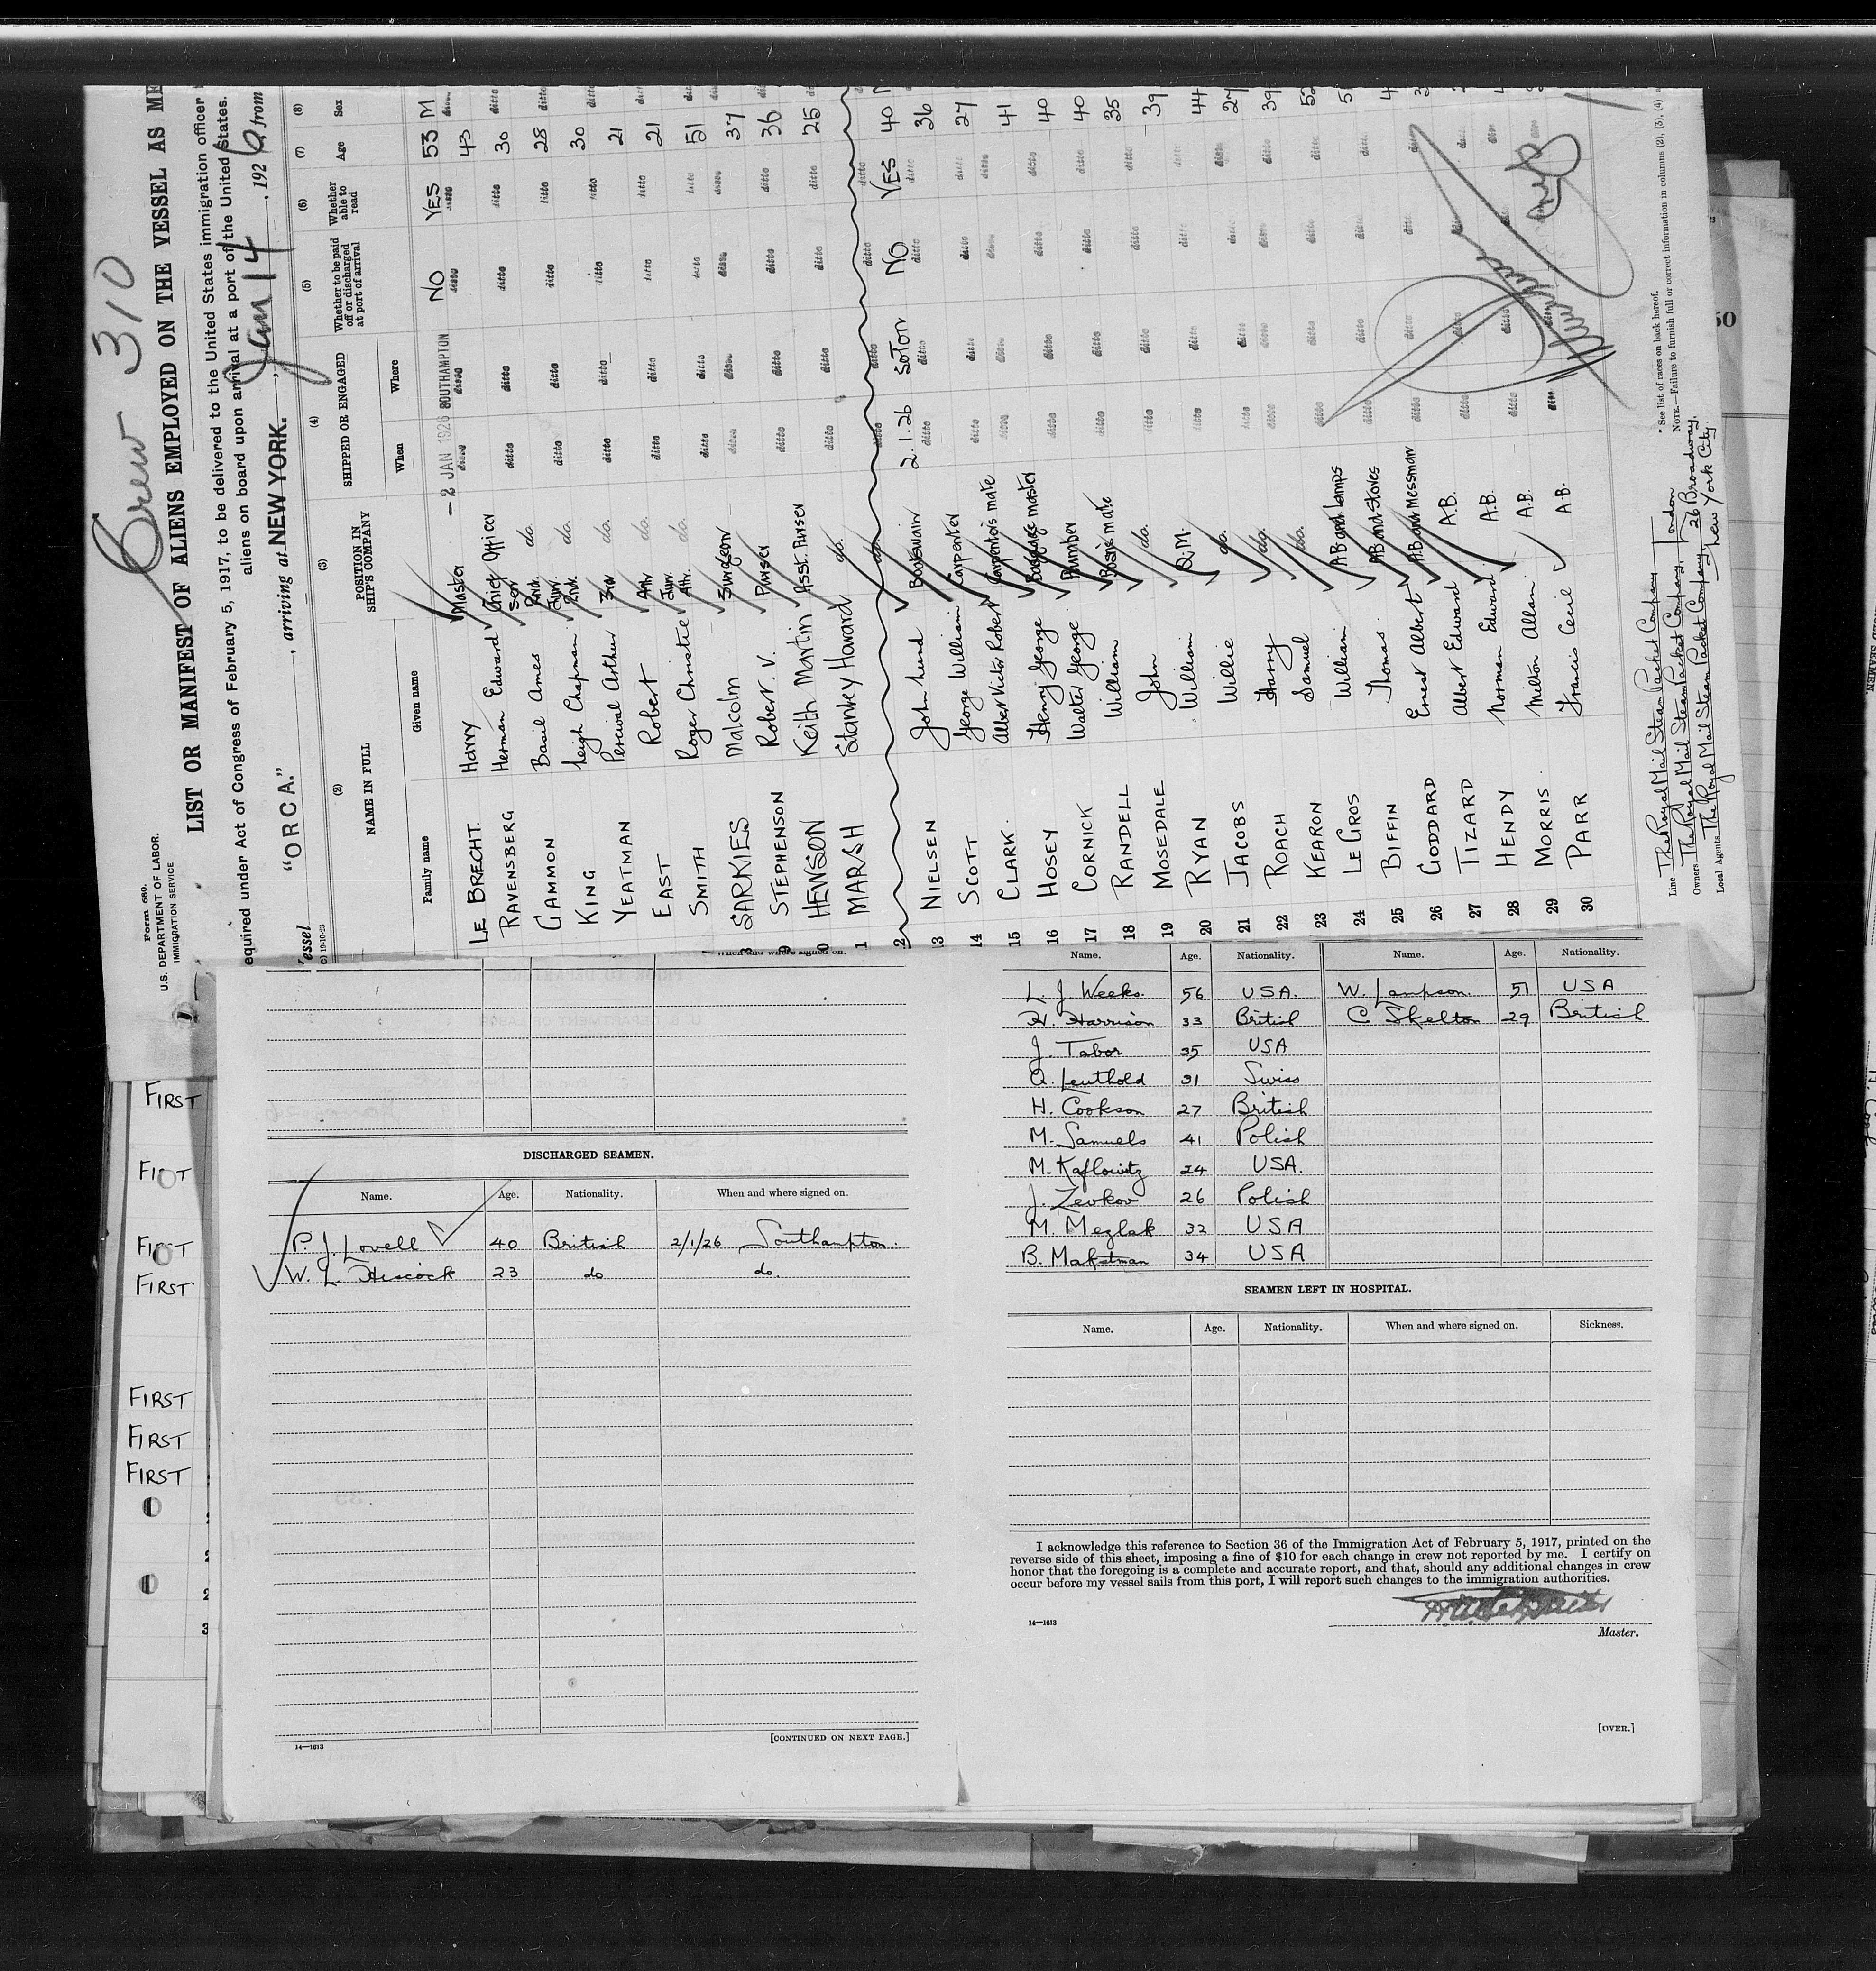 Crew 310
Form 680.
U.S. DEPARTMENT OF LABOR.
IMMIGRATION SERVICE
LIST OR MANIFEST OF ALIENS EMPLOYED ON THE VESSEL AS ME
equired under Act of Congress of February 5, 1917, to be delivered to the United States immigration officer
aliens on board upon arrival at a port of the United States.
essel "ORCA." , arriving at NEW YORK. , Jan 14 , 1926 from
(2) (3) (4) (5) (6) (7) (8)
NAME IN FULL POSITION IN SHIP'S COMPANY SHIPPED OR ENGAGED Whether to be paid off or discharged at port of arrival Whether able to read Age Sex
Family name Given name When Where
LE BRECHT. Harry Master - 2 JAN 1926 SOUTHAMPTON NO YES 53 M
RAVENSBERG Herman Edward Chief Officer ditto ditto ditto ditto 43 ditto
GAMMON Basil Ames Snr 2nd. do. ditto ditto ditto ditto 30 ditto
KING Leigh Chapman Junr. 2nd. do. ditto ditto ditto ditto 28 ditto
YEATMAN Percival Arthur 3rd do. ditto ditto ditto ditto 30 ditto
EAST Robert 4th do. ditto ditto ditto ditto 21 ditto
SMITH Roger Christie Junr. 4th. do. ditto ditto ditto ditto 21 ditto
8 SARKIES Malcolm Surgeon ditto ditto ditto ditto 51 ditto
9 STEPHENSON Robert. V. Purser ditto ditto ditto ditto 37 ditto
0 HEWSON Keith Martin Asst. Purser ditto ditto ditto ditto 36
1 MARSH Stanley Howard do. ditto ditto ditto ditto 25
2
13 NIELSEN John Lund Boatswain 2.1.26 SOTON NO YES 40
14 SCOTT George William Carpenter ditto ditto ditto ditto 36
15 CLARK. Albert Victor Robert Carpenter's mate ditto ditto ditto ditto 27
16 HOSEY Henry George Baggage master ditto ditto ditto ditto 41
17 CORNICK Walter George Plumber ditto ditto ditto ditto 40
18 RANDELL William Bosn's mate ditto ditto ditto ditto 40
19 MOSEDALE John do. ditto ditto ditto ditto 35
20 RYAN William Q.M. ditto ditto ditto ditto 39
21 JACOBS Willie do. ditto ditto ditto ditto 44
22 ROACH Harry do. ditto ditto ditto ditto 27
23 KEARON Samuel do. ditto ditto ditto ditto 39
24 LE GROS William A.B and Lamps ditto ditto ditto ditto 52
25 BIFFIN Thomas. A.B and Stores ditto ditto ditto ditto
26 GODDARD Ernest Albert A.B. and Messman ditto ditto ditto ditto
27 TIZARD Albert Edward A.B. ditto ditto ditto ditto
28 HENDY Norman Edward A.B. ditto ditto ditto ditto
29 MORRIS. Milton Allan A.B. ditto ditto ditto ditto
30 PARR Francis Cecil A.B.
Line The Royal Mail Steam Packet Company London
Owners The Royal Mail Steam Packet Company,
Local Agents The Royal Mail Steam Packet Company, 26 Broadway, New York City
* See list of races on back hereof.
NOTE.—Failure to furnish full or correct information in columns (2), (3), (4)
50
FIRST
FIRST
FIRST
FIRST
FIRST
FIRST
When and where signed on.
DISCHARGED SEAMEN.
Name. Age. Nationality. When and where signed on.
P. J. Lovell 40 British 2/1/26 Southampton.
W. L. Hiscock 23 do do.
14—1613
[CONTINUED ON NEXT PAGE.]
Name. Age. Nationality. Name. Age. Nationality.
L. J. Weeks. 56 USA. W. Lampson. 51 USA
H. Harrison 33 British C. Skelton 29 British
J. Tabor 35 USA
A. Leuthold 31 Swiss
H. Cookson 27 British
M. Samuels 41 Polish
M. Kaflowitz 24 USA.
J. Zevkov 26 Polish
M. Mezlak 32 USA
B. Maketman 34 USA
SEAMEN LEFT IN HOSPITAL.
Name. Age. Nationality. When and where signed on. Sickness.
I acknowledge this reference to Section 36 of the Immigration Act of February 5, 1917, printed on the
reverse side of this sheet, imposing a fine of $10 for each change in crew not reported by me. I certify on
honor that the foregoing is a complete and accurate report, and that, should any additional changes in crew
occur before my vessel sails from this port, I will report such changes to the immigration authorities.
14—1613
Master.
[OVER.]